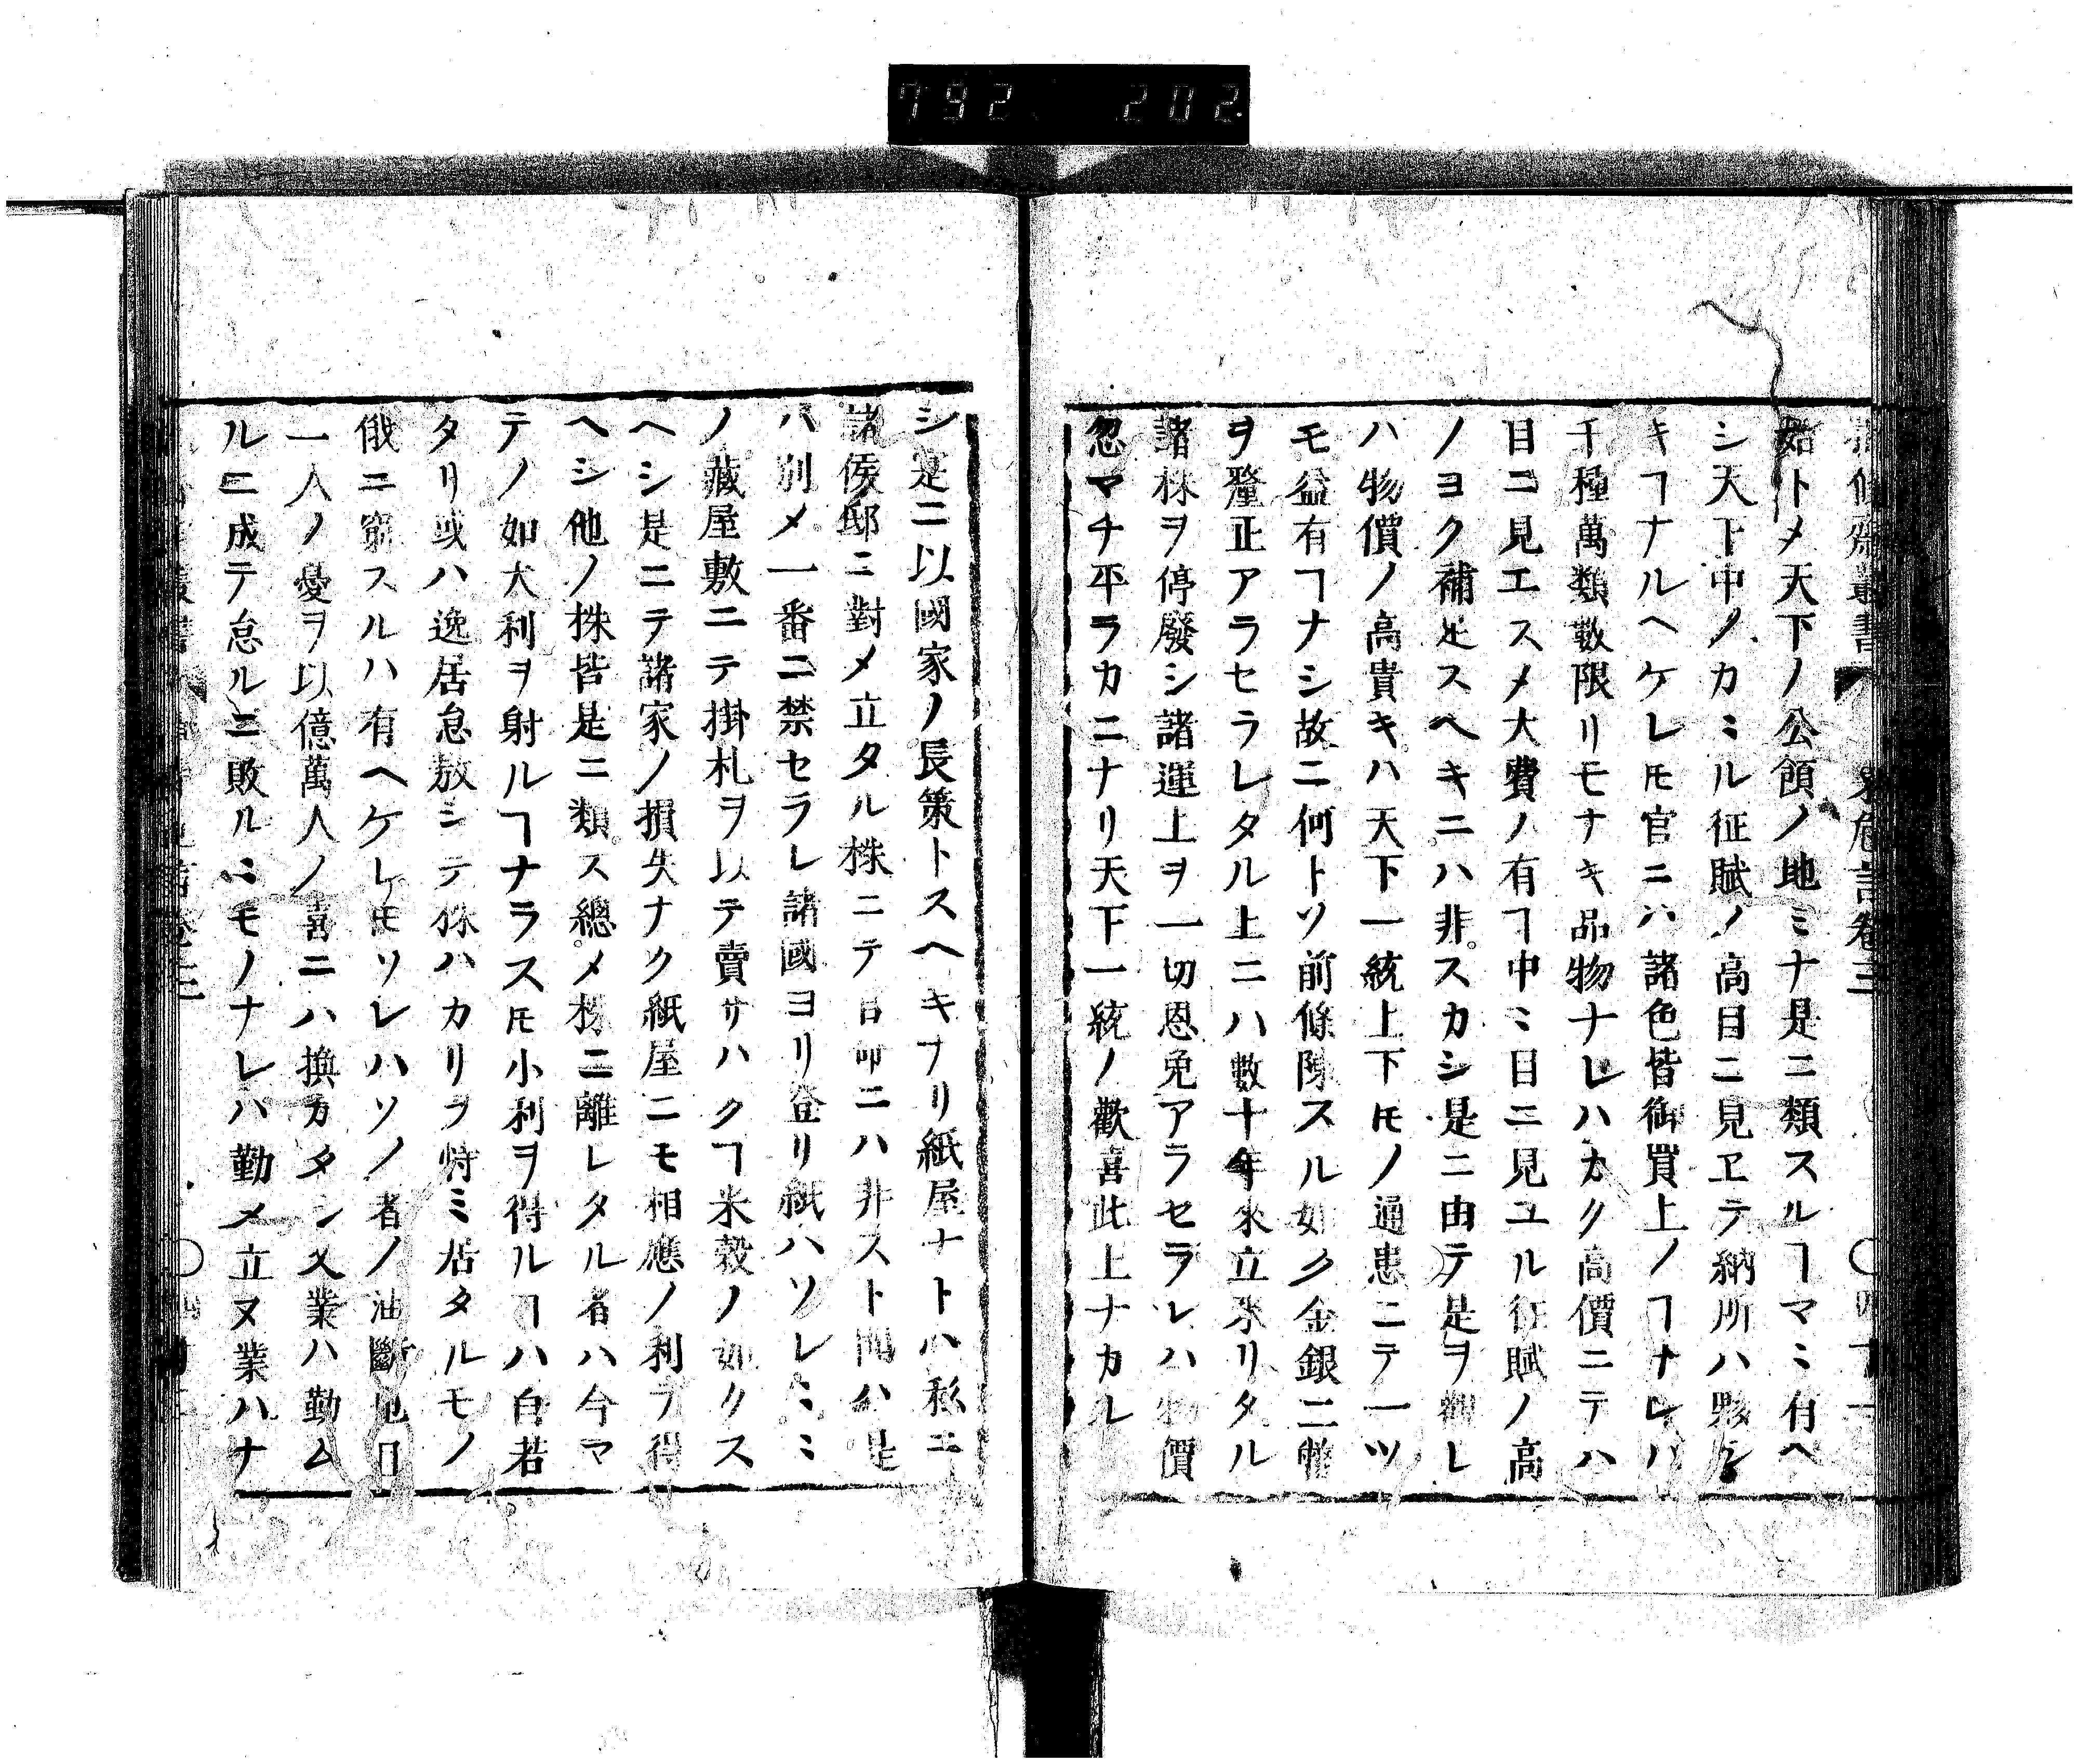 792 202
始トメ天下ノ公領ノ地ミナ是ニ類スルヿマミ有ヘ
シ天下中ノカミル征賦ノ高目ニ見ヱテ納所ハ夥シ
キヿナルヘケレ𪜈官ニハ諸色皆御買上ノヿナレハ
千種萬類數限リモナキ品物ナレハカク高價ニテハ
目ニ見エスメ大費ノ有ヿ中ミ目ニ見ユル征賦ノ高
ノヨク補足スヘキニハ非スカシ是ニ由テ是ヲ觀レ
ハ物價ノ高貴キハ天下一統上下𪜈ノ通患ニテ一ツ
モ益有ヿナシ故ニ何トソ前條陳スル如ク金銀二幣
ヲ釐正アラセラレタル上ニハ數十年來立來リタル
諸株ヲ停廢シ諸運上ヲ一切恩免アラセラレハ物價
忽マチ平ラカニナリ天下一統ノ歡喜此上ナカル
シ是ニ以國家ノ長策トスヘキナリ紙屋ナトハ私ニ
諸侯邸ニ對メ立タル株ニテ官命ニハ非スト聞ハ是
ハ別メ一番ニ禁セラレ諸國ヨリ登リ紙ハソレミミ
ノ藏屋敷ニテ掛札ヲ以テ賣サハクヿ米穀ノ如クス
ヘシ是ニテ諸家ノ損失ナク紙屋ニモ相應ノ利ヲ得
ヘシ他ノ株皆是ニ類ス總メ株ニ離レタル者ハ今マ
テノ如大利ヲ射ルヿナラス𪜈小利ヲ得ルヿハ自若
タリ或ハ逸居怠敖シテ株ハカリヲ恃ミ居タルモノ
俄ニ窮スルハ有ヘケレ𪜈ソレハソノ者ノ油斷也且
一人ノ憂ヲ以億萬人ノ喜ニハ換カタシ又業ハ勤ム
ルニ成テ怠ルニ敗ルミモノナレハ勤メ立ヌ業ハナ